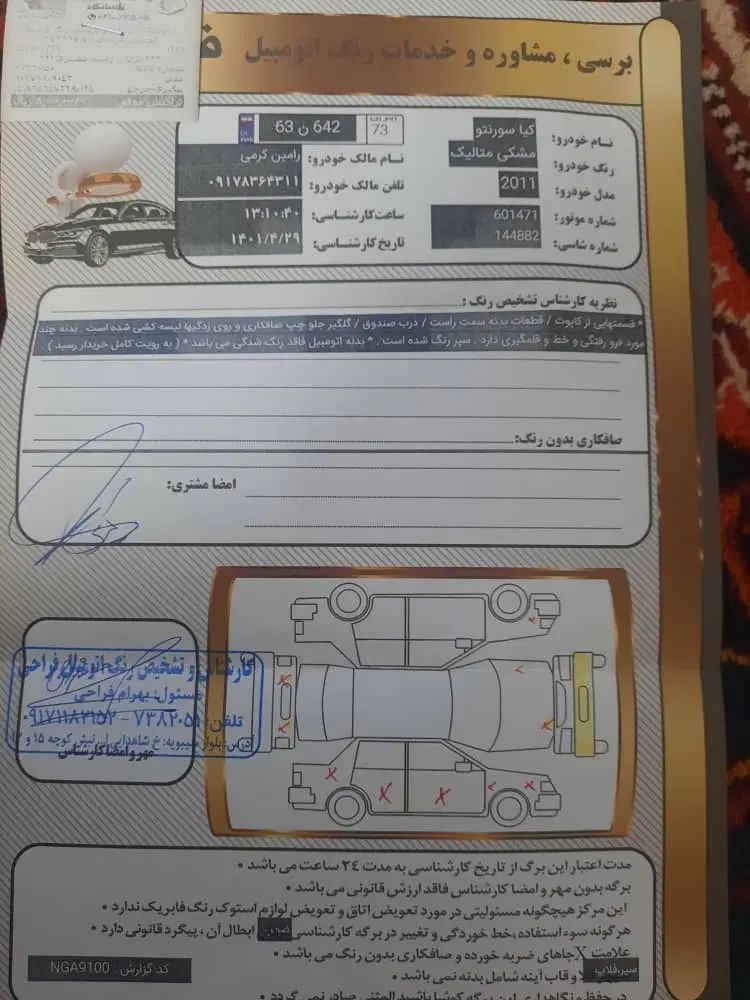 برسی ، مشاوره و خدمات رنگ اتومبیل
نام خودرو: کیا سورنتو
رنگ خودرو: مشکی متالیک
مدل خودرو: 2011
شماره موتور: 601471
شماره شاسی: 144882
73 642 ن 63
نام مالک خودرو: رامین کرمی
تلفن مالک خودرو: ۰۹۱۷۸۳۶۴۳۱۱
ساعت کارشناسی: ۱۳:۱۰:۴۰
تاریخ کارشناسی: ۱۴۰۱/۴/۲۹
نظریه کارشناس تشخیص رنگ :
* قسمتهایی از کاپوت / قطعات بدنه سمت راست / درب صندوق / گلگیر جلو چپ صافکاری و روی زدگیها لیسه کشی شده است . بدنه چند
مورد فرو رفتگی و خط و قلمگیری دارد . سپر رنگ شده است . * بدنه اتومبیل فاقد رنگ شدگی می باشد * ( به رویت کامل خریدار رسید ) .
صافکاری بدون رنگ:
امضا مشتری:
کارشناسی و تشخیص رنگ اتومبیل فراحی
مسئول: بهرام فراحی
تلفن: ۷۳۸۲۰۵۱ - ۰۹۱۷۱۱۸۲۱۵۲
مهر و امضا کارشناس
مدت اعتبار این برگ از تاریخ کارشناسی به مدت ٢٤ ساعت می باشد •
برگه بدون مهر و امضا کارشناس فاقد ارزش قانونی می باشد •
این مرکز هیچگونه مسئولیتی در مورد تعویض اتاق و تعویض لوازم استوک رنگ فابریک ندارد •
هر گونه سوء استفاده ،خط خوردگی و تغییر در برگه کارشناسی ابطال آن ، پیگرد قانونی دارد •
علامت X جاهای ضربه خورده و صافکاری بدون رنگ می باشد •
سپر،فلاپ و قاب آینه شامل بدنه نمی باشد •
کد گزارش : NGA9100